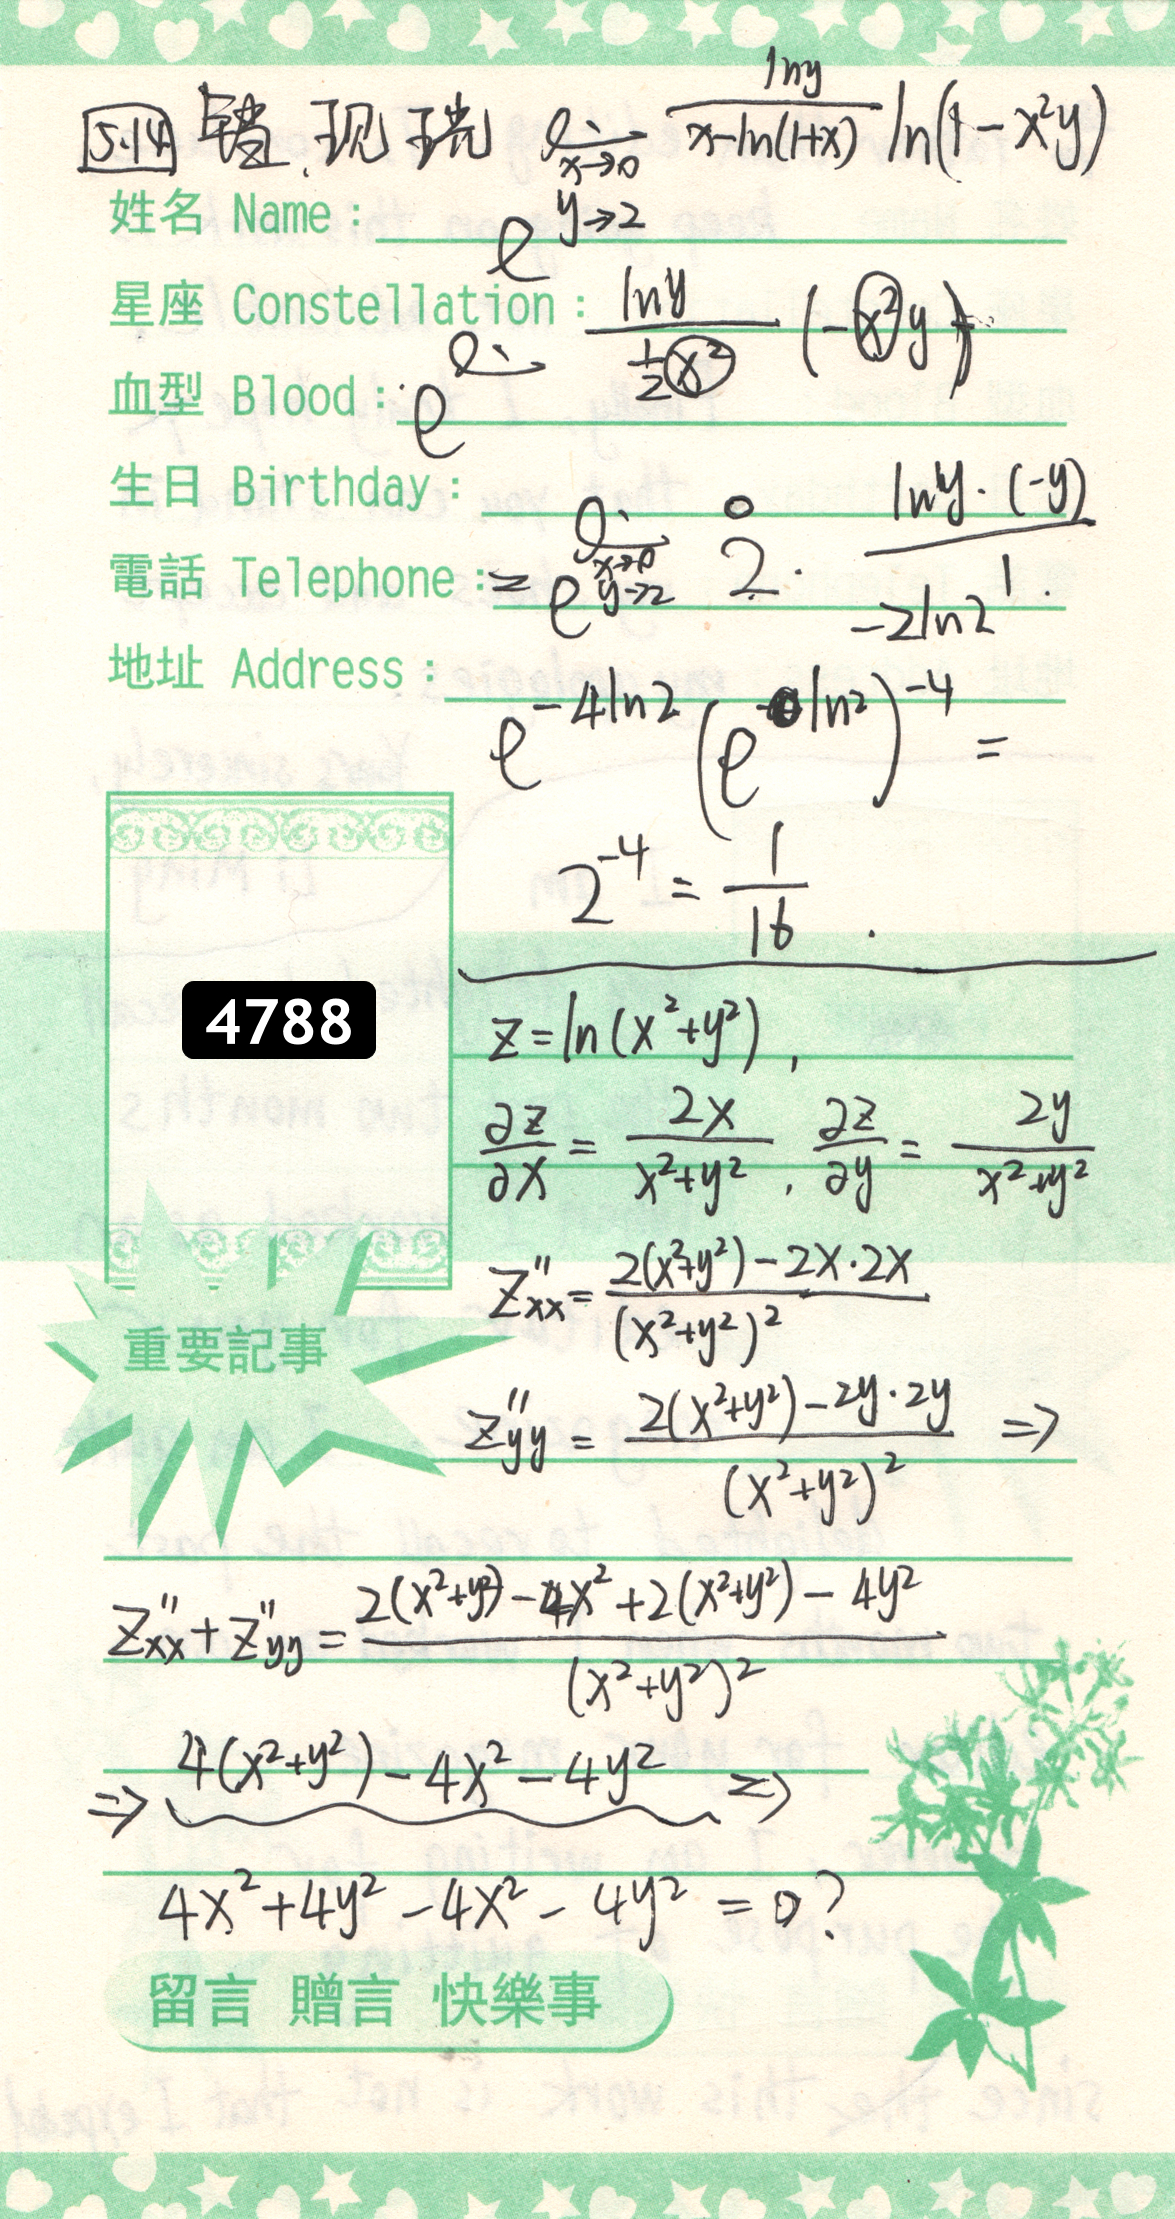 5.14 错.现 lim x→0 lny/(x-ln(1+x)) ln(1-x²y)
姓名 Name: e y→2
星座 Constellation: lny/(½x²) (-x²y)
血型 Blood: e lim
生日 Birthday: lim x→0 y→2 2· lny·(-y)/1
電話 Telephone: = e -2ln2
地址 Address:
e^(-4ln2) (e^(ln2))^(-4) =
2^(-4) = 1/16.
4788
z=ln(x²+y²),
∂z/∂x = 2x/(x²+y²), ∂z/∂y = 2y/(x²+y²)
z″xx = (2(x²+y²)-2x·2x)/(x²+y²)²
重要記事
z″yy = (2(x²+y²)-2y·2y)/(x²+y²)² ⇒
z″xx+z″yy = (2(x²+y²)-4x²+2(x²+y²)-4y²)/(x²+y²)²
⇒ 4(x²+y²)-4x²-4y² ⇒
4x²+4y²-4x²-4y² = 0?
留言 贈言 快樂事